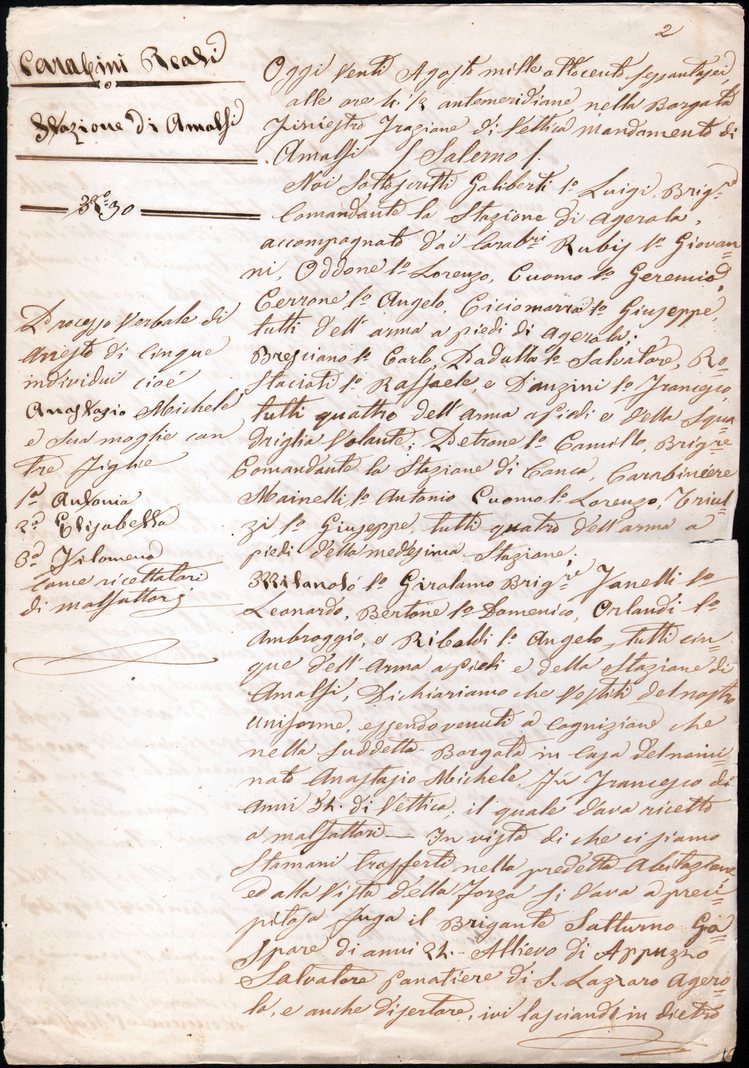 2
Carabini Reali
Stazione di Amalfi
No. 30
Processo Verbale di
arresto di cinque
individui cioè
Anastasio Michele
e sua moglie con
tre figlie
1a Antonia
2a Elisabetta
3a Filomena
come ricettatori
di malfattori
Oggi venti Agosto mille ottocento sessantasei
alle ore 4 1/2 antemeridiane nella Borgata
Finiestro frazione di Vettica mandamento di
Amalfi / Salerno /.
Noi sottoscritti Galiberti 1o Luigi, Brigre
Comandante la Stazione di Agerola,
accompagnato dai Carabri Rubis 1o Giovan
ni, Oddone 1o Lorenzo, Cuomo 1o Geremia,
Cerrone 1o Angelo, Ciciomarra 1o Giuseppe,
tutti dell'arma a piedi di Agerola;
Bresciano 1o Carlo, Dadalla 1o Salvatore, Ro
staciati 1o Raffaele, e Danzini 1o Francesco,
tutti quattro dell'arma a piedi e della Squa
driglia Volante; Petrone 1o Camillo, Brigre
Comandante la Stazione di Conca, Carabiniere
Mainelli 1o Antonio Cuomo 1o Lorenzo, Triul
zi 1o Giuseppe tutti quatro dell'arma a
piedi della medesima Stazione.
Milanolo 1o Girolamo Brigre Vanelli 1o
Leonardo, Bertone 1o Domenico, Orlandi 1o
Ambroggio, e Ribaldi 1o Angelo, tutti cin
que dell'Arma a piedi e della Stazione di
Amalfi, Dichiariamo che vestiti del nostro
uniforme, essendo venuti a cognizione che
nella suddetta Borgata in casa del nomi
nato Anastasio Michele, fu Francesco di
Anni 54. di Vettica, il quale dava ricetto
a malfattori — In vista di che ci siamo
stamani trasferti nella predetta Abitazione
ed alla vista della Forza si dava a preci
pitosa fuga il Brigante Satturno Ga
spare di anni 24 - Allievo di Appuzzo
Salvatore Panatiere di S. Lazzaro Agero
la, e anche disertore, ivi lasciando in dietro